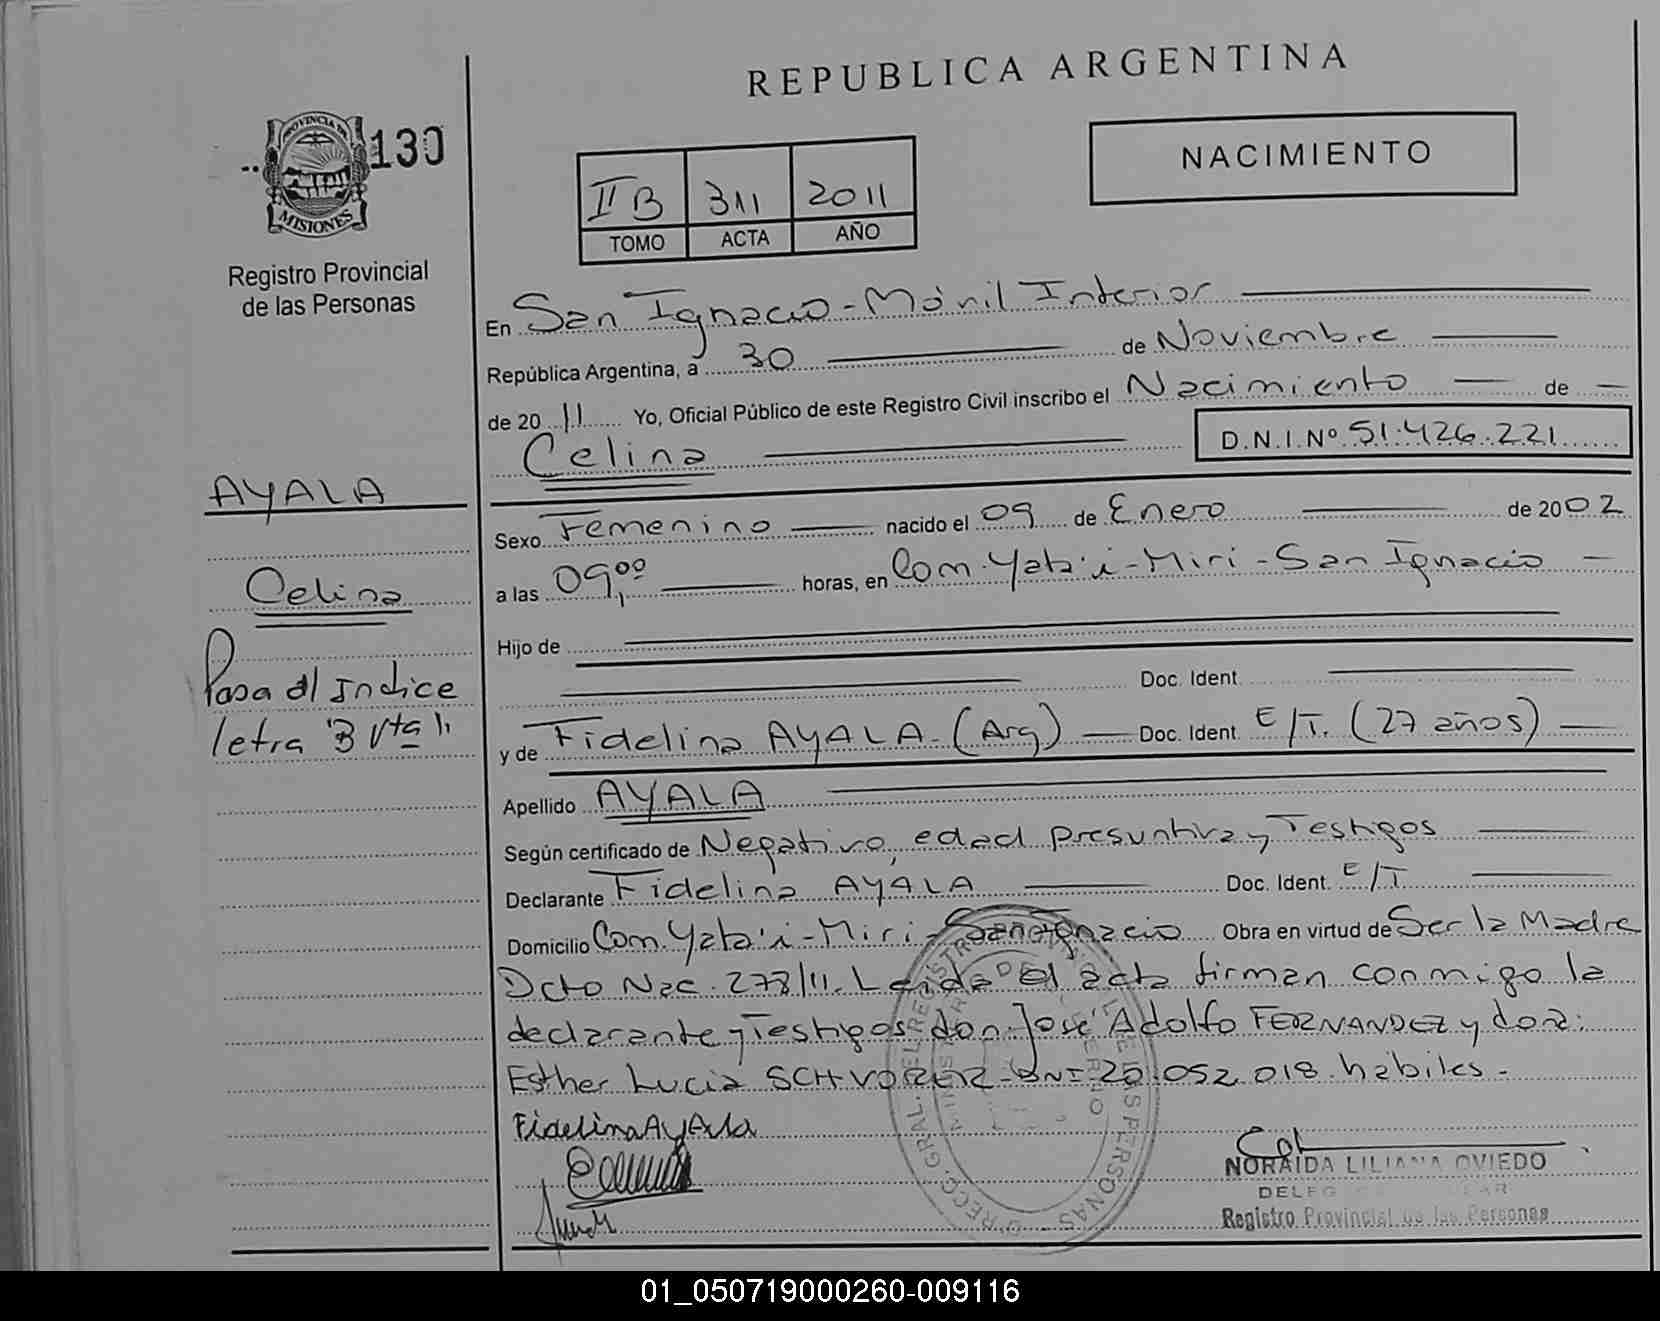 REPUBLICA ARGENTINA
PROVINCIA DE
MISIONES
130
Registro Provincial
de las Personas
NACIMIENTO
II B 311 2011
TOMO ACTA AÑO
En San Ignacio - Móvil Interior
República Argentina, a 30 de Noviembre
de 20 11 Yo, Oficial Público de este Registro Civil inscribo el Nacimiento de
Celina D.N.I.Nº 51.426.221
AYALA
Celina
Pasa al Indice
letra "B Vta"
Sexo Femenino nacido el 09 de Enero de 2002
a las 09,00 horas, en Com. Yata'i - Miri - San Ignacio
Hijo de
Doc. Ident.
y de Fidelina AYALA - (Arg) Doc. Ident. E/T. (27 años)
Apellido AYALA
Según certificado de Negativo, edad presuntiva y Testigos
Declarante Fidelina AYALA Doc. Ident. E/T
Domicilio Com. Yata'i - Miri - San Ignacio Obra en virtud de Ser la Madre
Dcto Nac. 278/11. Leida el acta firman conmigo la
declarante y Testigos don José Adolfo FERNANDEZ y doña:
Esther Lucia SCHVORER - DNI 20.052.018 habiles -
Fidelina AyAla
NORAIDA LILIANA OVIEDO
Registro Provincial de las Personas
01_050719000260-009116